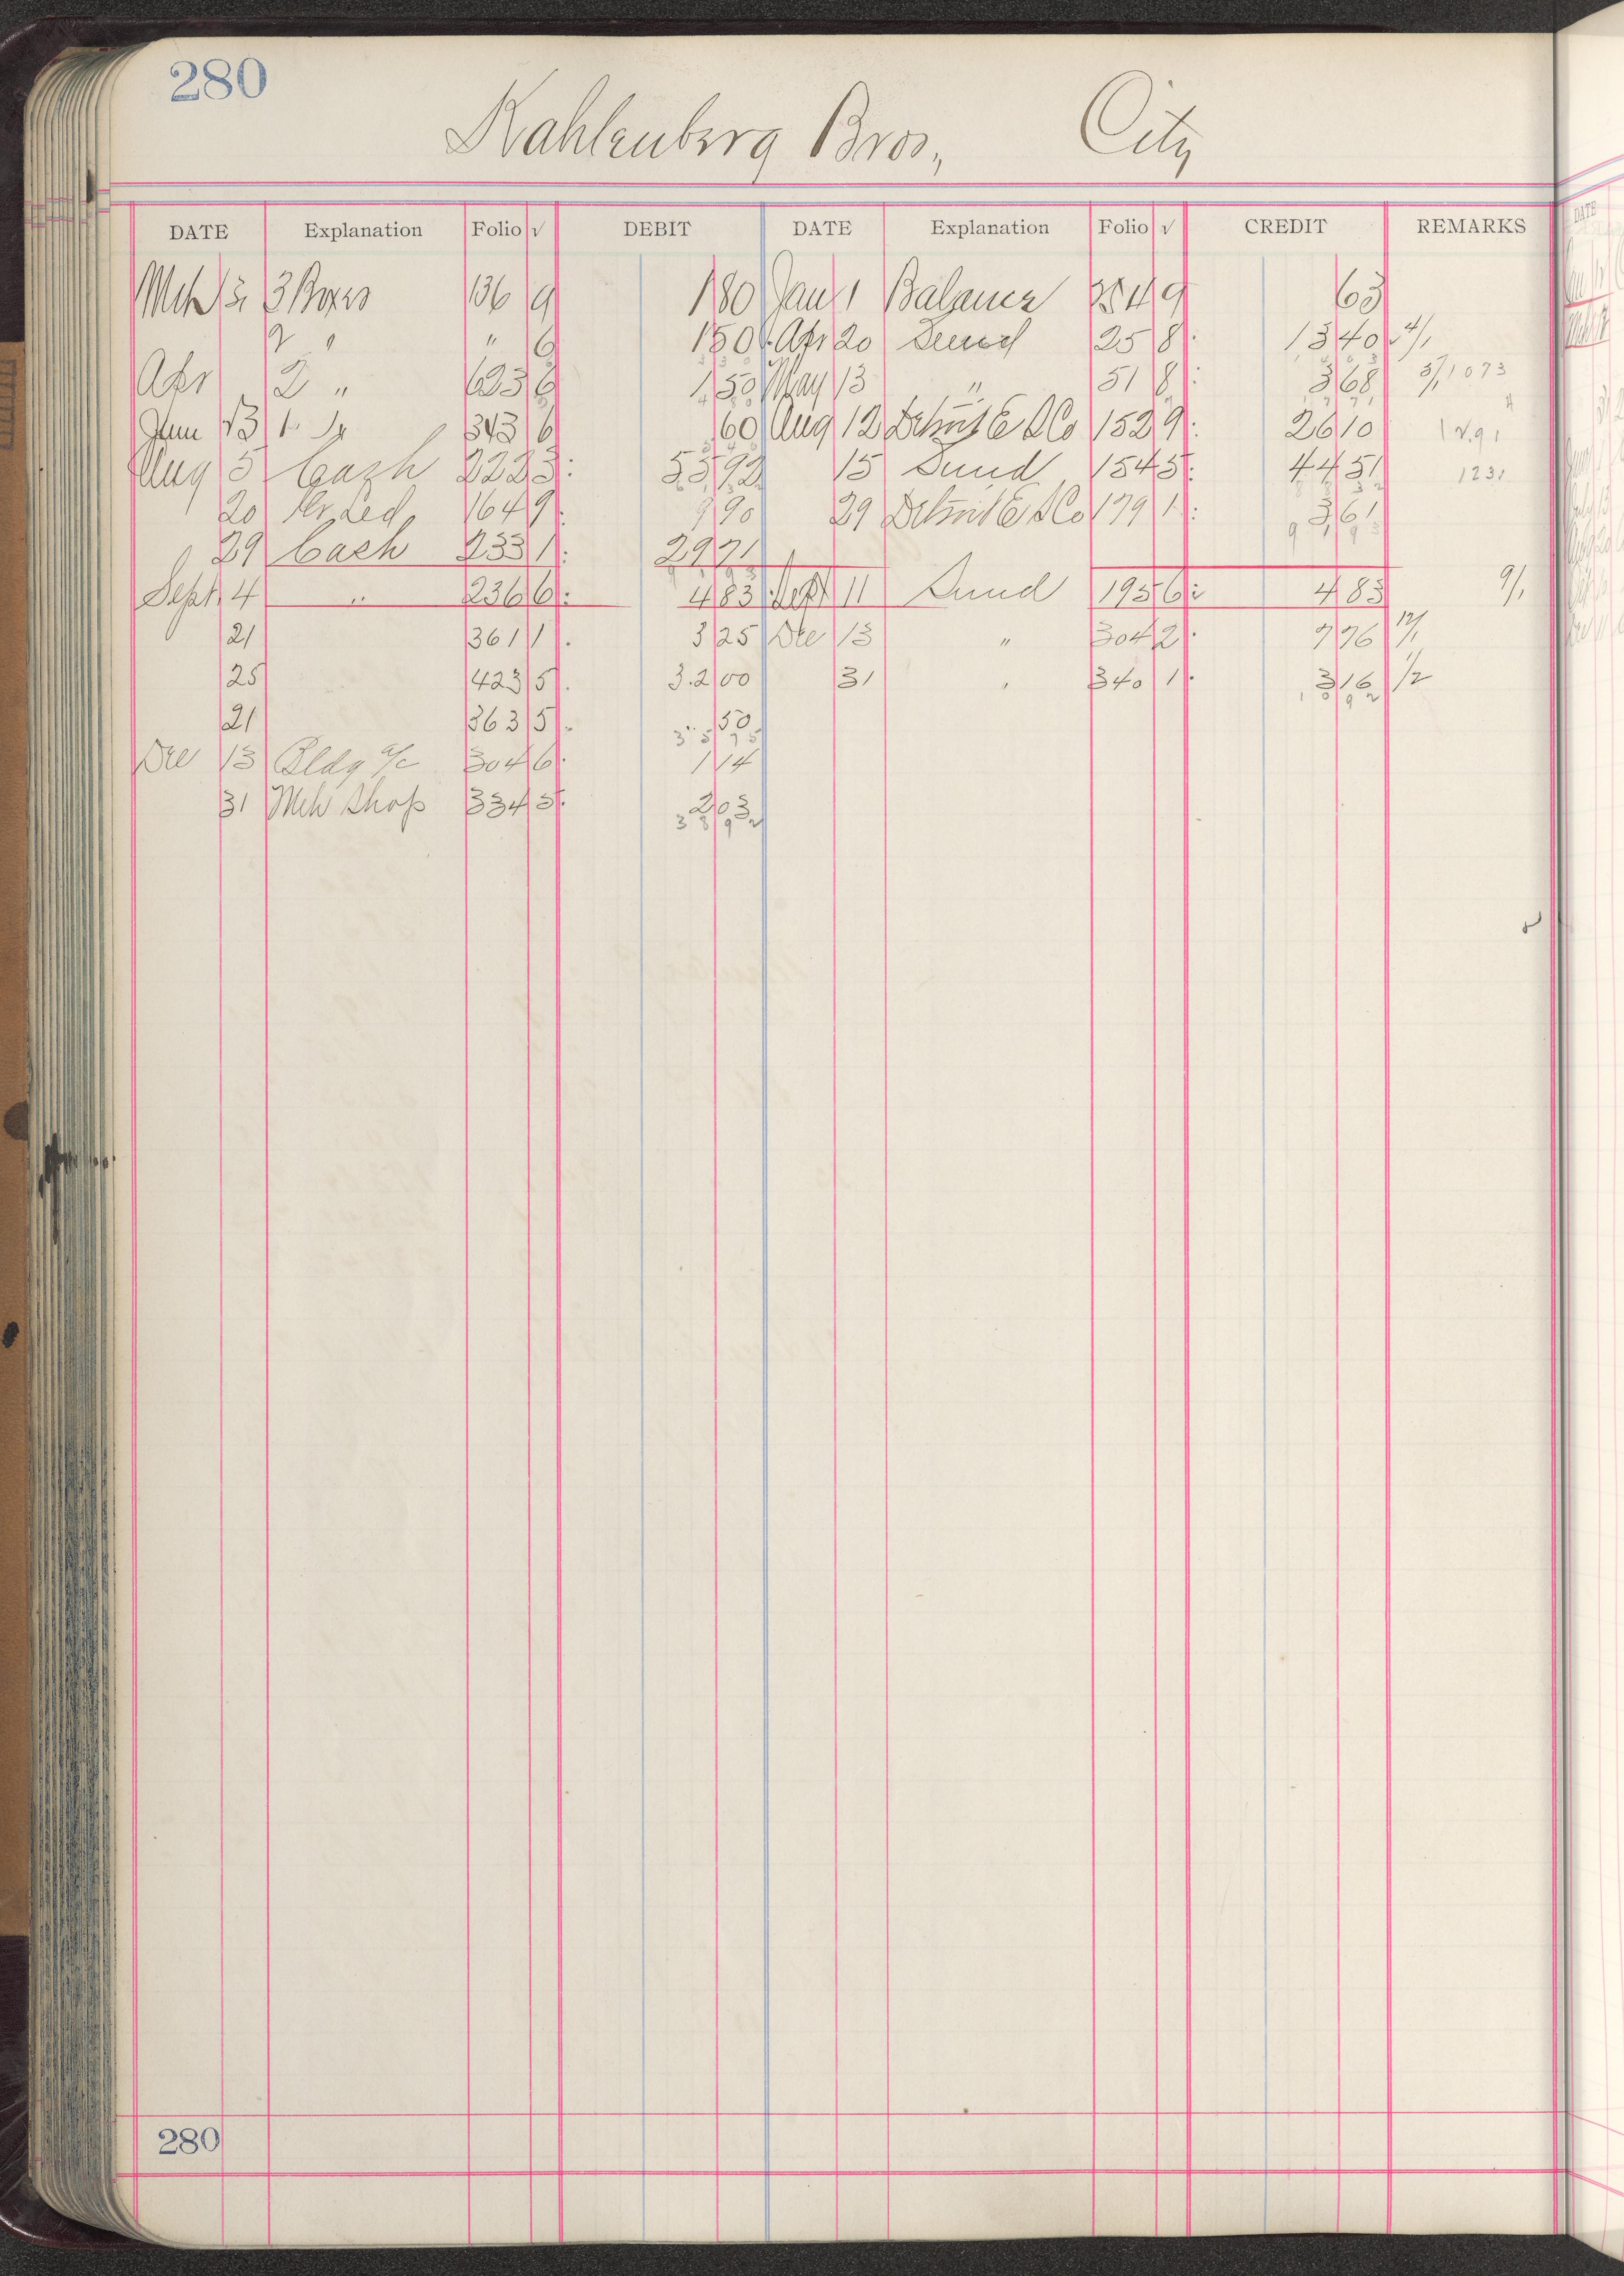 280
Kahlenberg Bros., City
DATE Explanation Folio √ DEBIT DATE Explanation Folio √ CREDIT REMARKS
Mch 3 Boxes 136 9 1 80 Jan 1 Balance 354 9 63
2 " " 6 1 50 Apr 20 Sund 25 8 13 40 4/1
Apr 2 " 623 6 1 50 May 13 " 51 8 3 68 5/1 1073
June 13 1 343 6 60 Aug 12 Detroit E & Co 152 9 26 10 1291
Aug 5 Cash 222 3 55 92 15 Sund 154 5 44 51 1231
20 Led 164 9 9 90 29 Detroit E & Co 179 1 3 61
29 Cash 233 1 29 71
Sept 4 " 236 6 4 83 Sept 11 Sund 195 6 4 83 9/1
21 361 1 3 25 Dec 13 " 304 2 7 76 12/1
25 423 5 32 00 31 " 340 1 3 16 1/2
21 363 5 50
35 75
Dec 13 Bldg a/c 304 6 1 14
31 Mch Shop 334 5 2 03
38 92
280